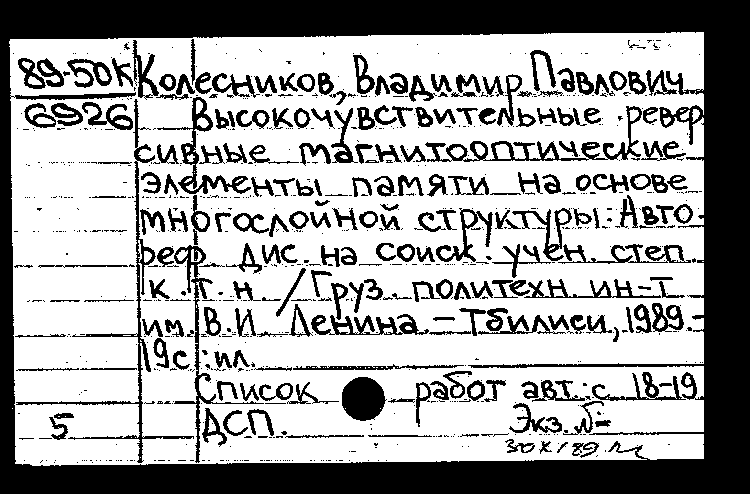 89-50К Колесников, Владимир Павлович
6926 Высокочувствительные ревер
сивные магнитооптические
элементы памяти на основе
многослойной структуры: Авто-
реф. дис. на соиск. учен. степ.
к.т.н. / Груз. политехн. ин-т
им. В.И. Ленина. - Тбилиси, 1989.-
19с.: ил.
Список работ авт.: с. 18-19
5 ДСП. Экз. №